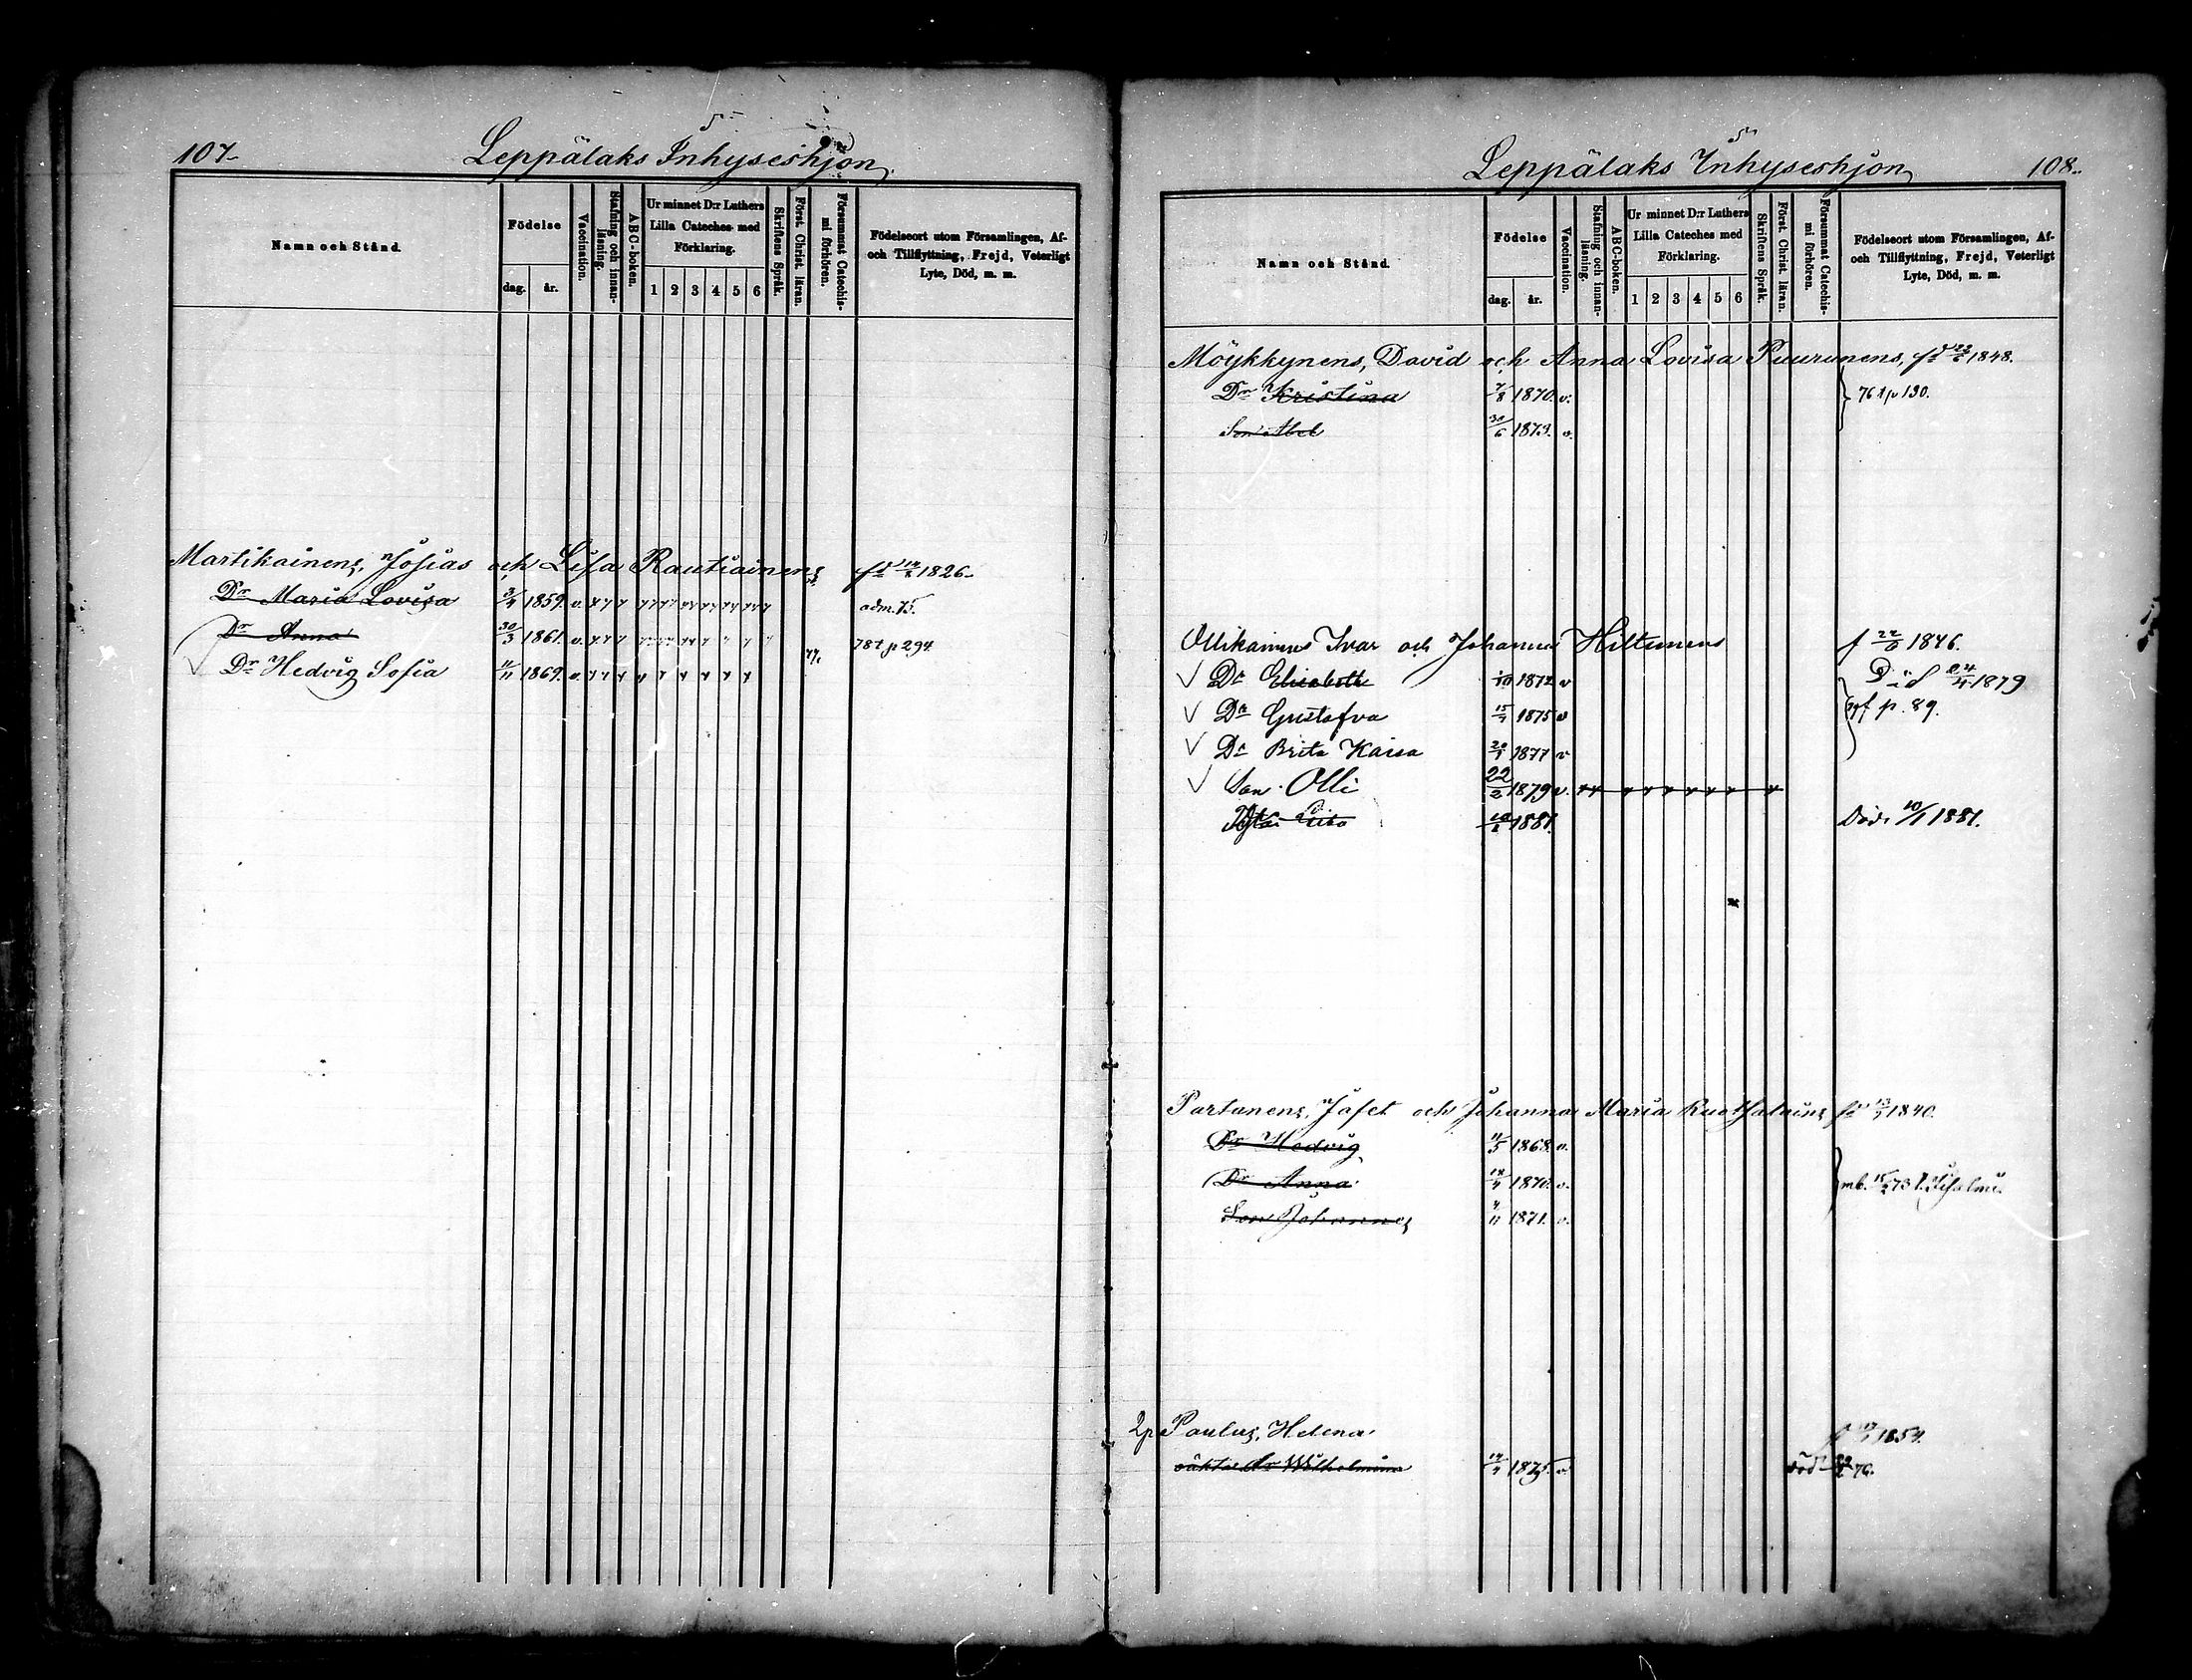 5
107.
Leppälaks Inhyseshjon.
Namn och Stånd.
Födelse
dag. år.
Vaccination.
Stafning och innanläsning.
ABC-boken.
Ur minnet D:r Luthers Lilla Cateches med Förklaring.
1 2 3 4 5 6
Skriftens Språk.
Först. Christ. läran.
Försummat Catechismi förhören.
Födelseort utom Församlingen, Af- och Tillflyttning, Frejd, Veterligt Lyte, Död, m. m.
Martikainens, Josias och Lisa Rautiainens fd 14/8 1826.
Dr Maria Lovisa 3/4 1859. v. adm. 75.
Dr Anna 30/3 1861. v. 78 t p 294
Dr Hedvig Sofia 11/11 1869. v.
5
Leppälaks Inhyseshjon
108.
Namn och Stånd.
Födelse
dag. år.
Vaccination.
Stafning och innanläsning.
ABC-boken.
Ur minnet D:r Luthers Lilla Cateches med Förklaring.
1 2 3 4 5 6
Skriftens Språk.
Först. Christ. läran.
Försummat Catechismi förhören.
Födelseort utom Församlingen, Af- och Tillflyttning, Frejd, Veterligt Lyte, Död, m. m.
Möykkynens, David och Anna Lovisa Puurunens, fd 1848.
Dr Kristina 7/8 1870. v. 76 t p 130.
Son Abel 30/6 1873. v.
Ollikainens Ivar och Johanna Hiltunens f 1846.
Dr Elisabeth 1872 v Död 24/4 1879
Dr Gustafva 1875 v p. 89.
Dr Brita Kaisa 1877 v
Son Olli 22/2 1879 v.
1881. Död. 10/1 1881.
Partanens, Jafet och Johanna Maria Ruotsalains fd 1840.
Dr Hedvig 11/5 1868. v.
Dr Anna 1870. v. mb. 15/2 73 t. Idisalmi.
Son Johannes 9/11 1871. v.
2p Paulus, Helena 1854.
oäkta dr Wilhelmina 1875. v. död 76.